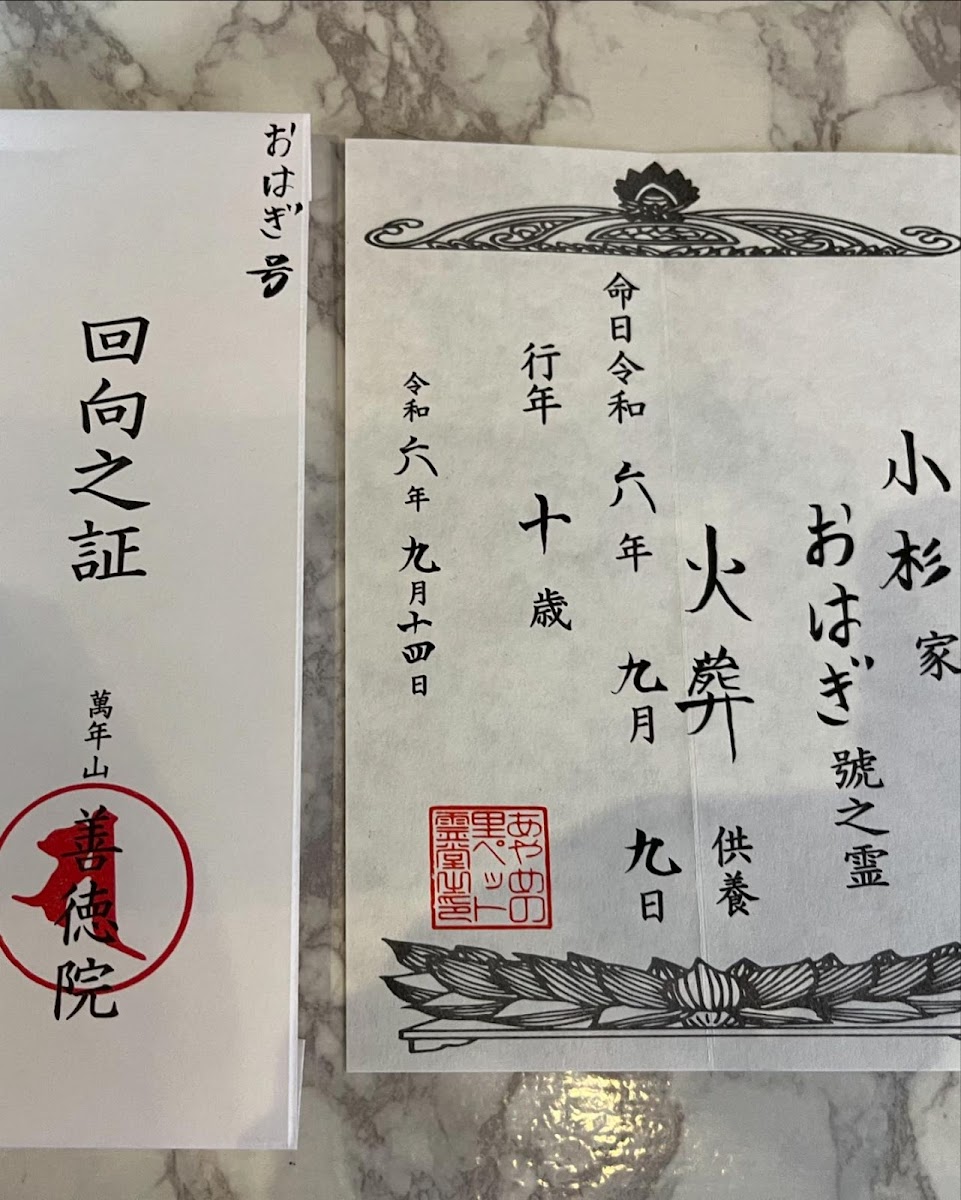 小杉家
おはぎ號之霊
火葬供養
命日令和六年九月九日
行年十歳
令和六年九月十四日
あやめの
里ペット
霊堂之印
おはぎ号
回向之証
萬年山
善徳院